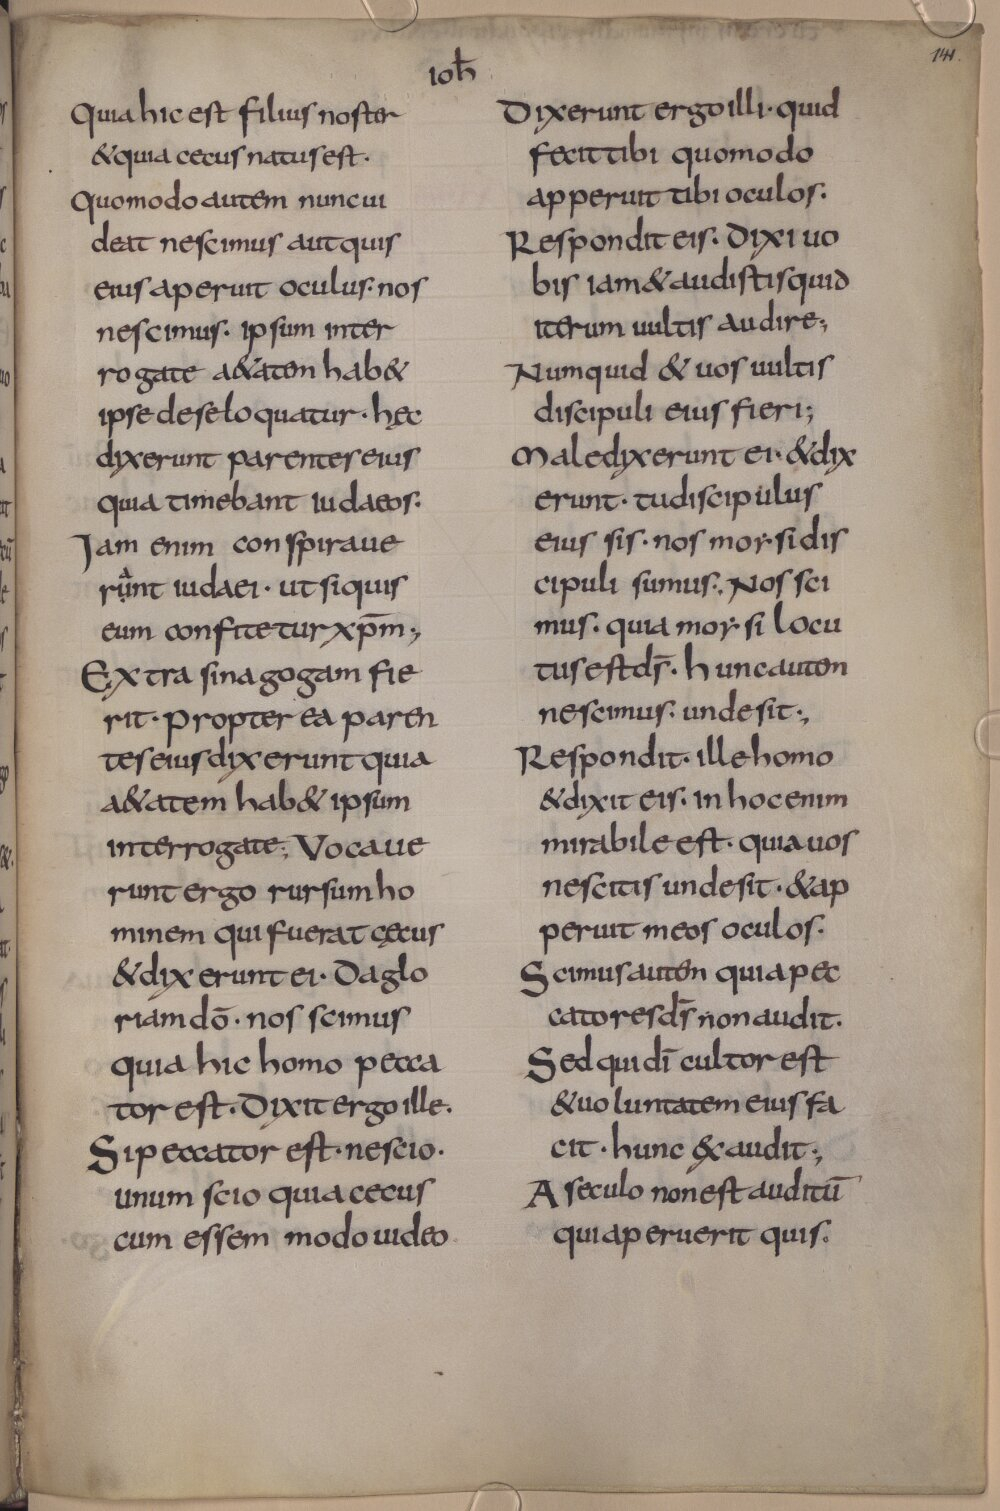 141.
ioħ
Quia hic est filius noster
& quia cecus natus est.
Quomodo autem nunc ui
deat nescimus aut quis
eius aperuit oculus. nos
nescimus. ipsum inter
rogate a&atem hab&
ipse de se loquatur. hęc
dixerunt parentes eius
quia timebant iudaeos.
Iam enim conspiraue
runt iudaei. ut si quis
eum confitetur xp̄m.,
Extra sinagogam fie
rit. propter ea paren
tes eius dixerunt quia
a&atem hab& ipsum
interrogate., Vocaue
runt ergo rursum ho
minem qui fuerat cęcus
& dixerunt ei. Da glo
riam dō. nos scimus
quia hic homo pecca
tor est. Dixit ergo ille.
Si peccator est. nescio.
unum scio quia cecus
cum essem modo uideo
Dixerunt ergo illi. quid
fecit tibi quomodo
apperuit tibi oculos.
Respondit eis. Dixi uo
bis iam & audistis quid
iterum uultis audire;
Numquid & uos uultis
discipuli eius fieri;
Maledixerunt ei. & dix
erunt. tu discipulus
eius sis. nos moysi dis
cipuli sumus., Nos sci
mus. quia moysi locu
tus est ds̄. hunc autem
nescimus. unde sit.,
Respondit. ille homo
& dixit eis. in hoc enim
mirabile est. quia uos
nescitis unde sit. & ap
peruit meos oculos.
Scimus autem quia pec
catores ds̄ non audit.
Sed qui dī cultor est
& uoluntatem eius fa
cit. hunc exaudit.,
A seculo non est auditū
quia peruerit quis.